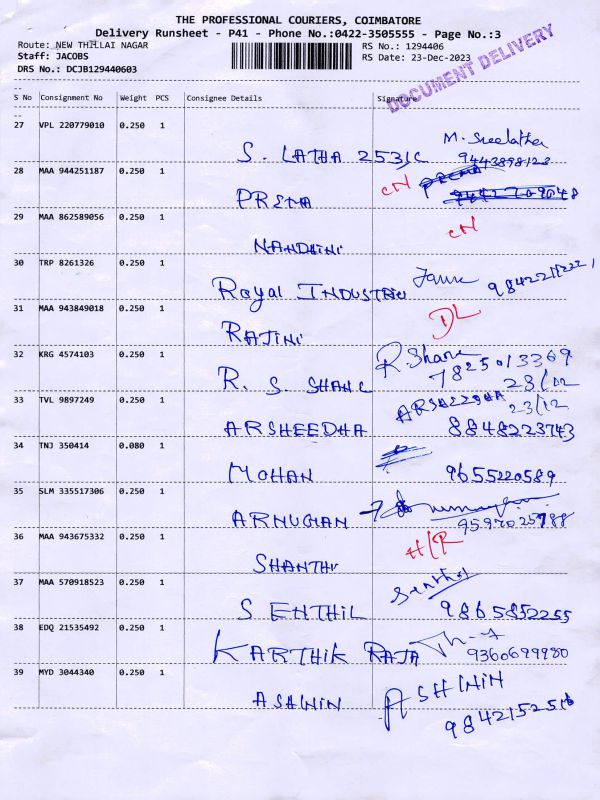 THE PROFESSIONAL COURIERS, COIMBATORE
Delivery Runsheet - P41 - Phone No.:0422-3505555 - Page No.:3
Route: NEW THILLAI NAGAR
RS No.: 1294406
Staff: JACOBS
RS Date: 23-Dec-2023
DRS No.: DCJB129440603
DOCUMENT DELIVERY
S No Consignment No Weight PCS Consignee Details Signature
27 VPL 220779010 0.250 1
M. Sreelatha
S. LATHA 2531C 9443898123
28 MAA 944251187 0.250 1
CN PREMA
PREMA 9442709048
29 MAA 862589056 0.250 1
CN
NANDHINI
30 TRP 8261326 0.250 1
Royal INDUSTRIES 9842217222
31 MAA 943849018 0.250 1
DL
RAJINI
32 KRG 4574103 0.250 1
R. Shane
7825013369
R. S. SHANE 23/12
33 TVL 9897249 0.250 1
23/12
ARSHEEDHA 8848223743
34 TNJ 350414 0.080 1
MOHAN 9655220589
35 SLM 335517306 0.250 1
ARMUGHAN 9597025988
36 MAA 943675332 0.250 1
H/R
SHANTHI
37 MAA 570918523 0.250 1
Senthil
SENTHIL 9865852255
38 EDQ 21535492 0.250 1
KARTHIK RAJA 9360699980
39 MYD 3044340 0.250 1
ASHWIN
ASHWIN 9842152516